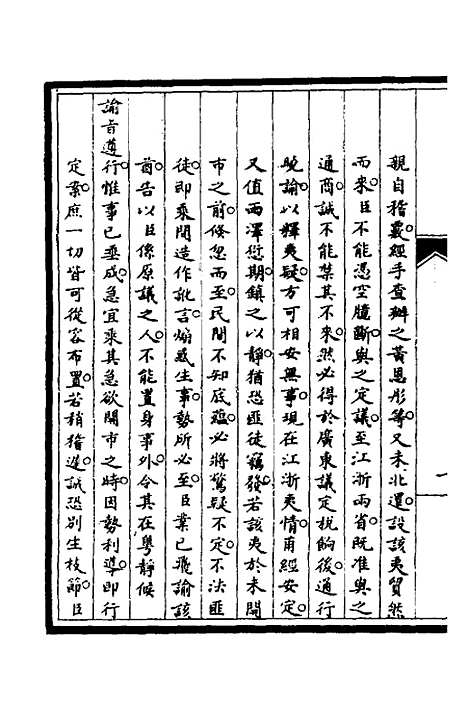 親自稽覈經手查辦之黃恩彤等又未北還設該夷貿然
而來臣不能憑空臆斷與之定議至江浙兩省既准與之
通商誠不能禁其不來然必得於廣東議定稅餉後通行
曉諭以釋夷疑方可相安無事現在江浙夷情甫經安定
又值雨澤愆期鎮之以靜猶恐匪徒竊發若該夷於未開
市之前倏忽而至民間不知底蘊必將驚疑不定不法匪
徒即乘間造作訛言煽惑生事勢所必至臣業已飛諭該
酋告以臣係原議之人不能置身事外令其在粵靜候
諭旨遵行惟事已垂成急宜乘其急欲開市之時因勢利導即行
定案庶一切皆可從容布置若稍稽遲誠恐別生枝節臣